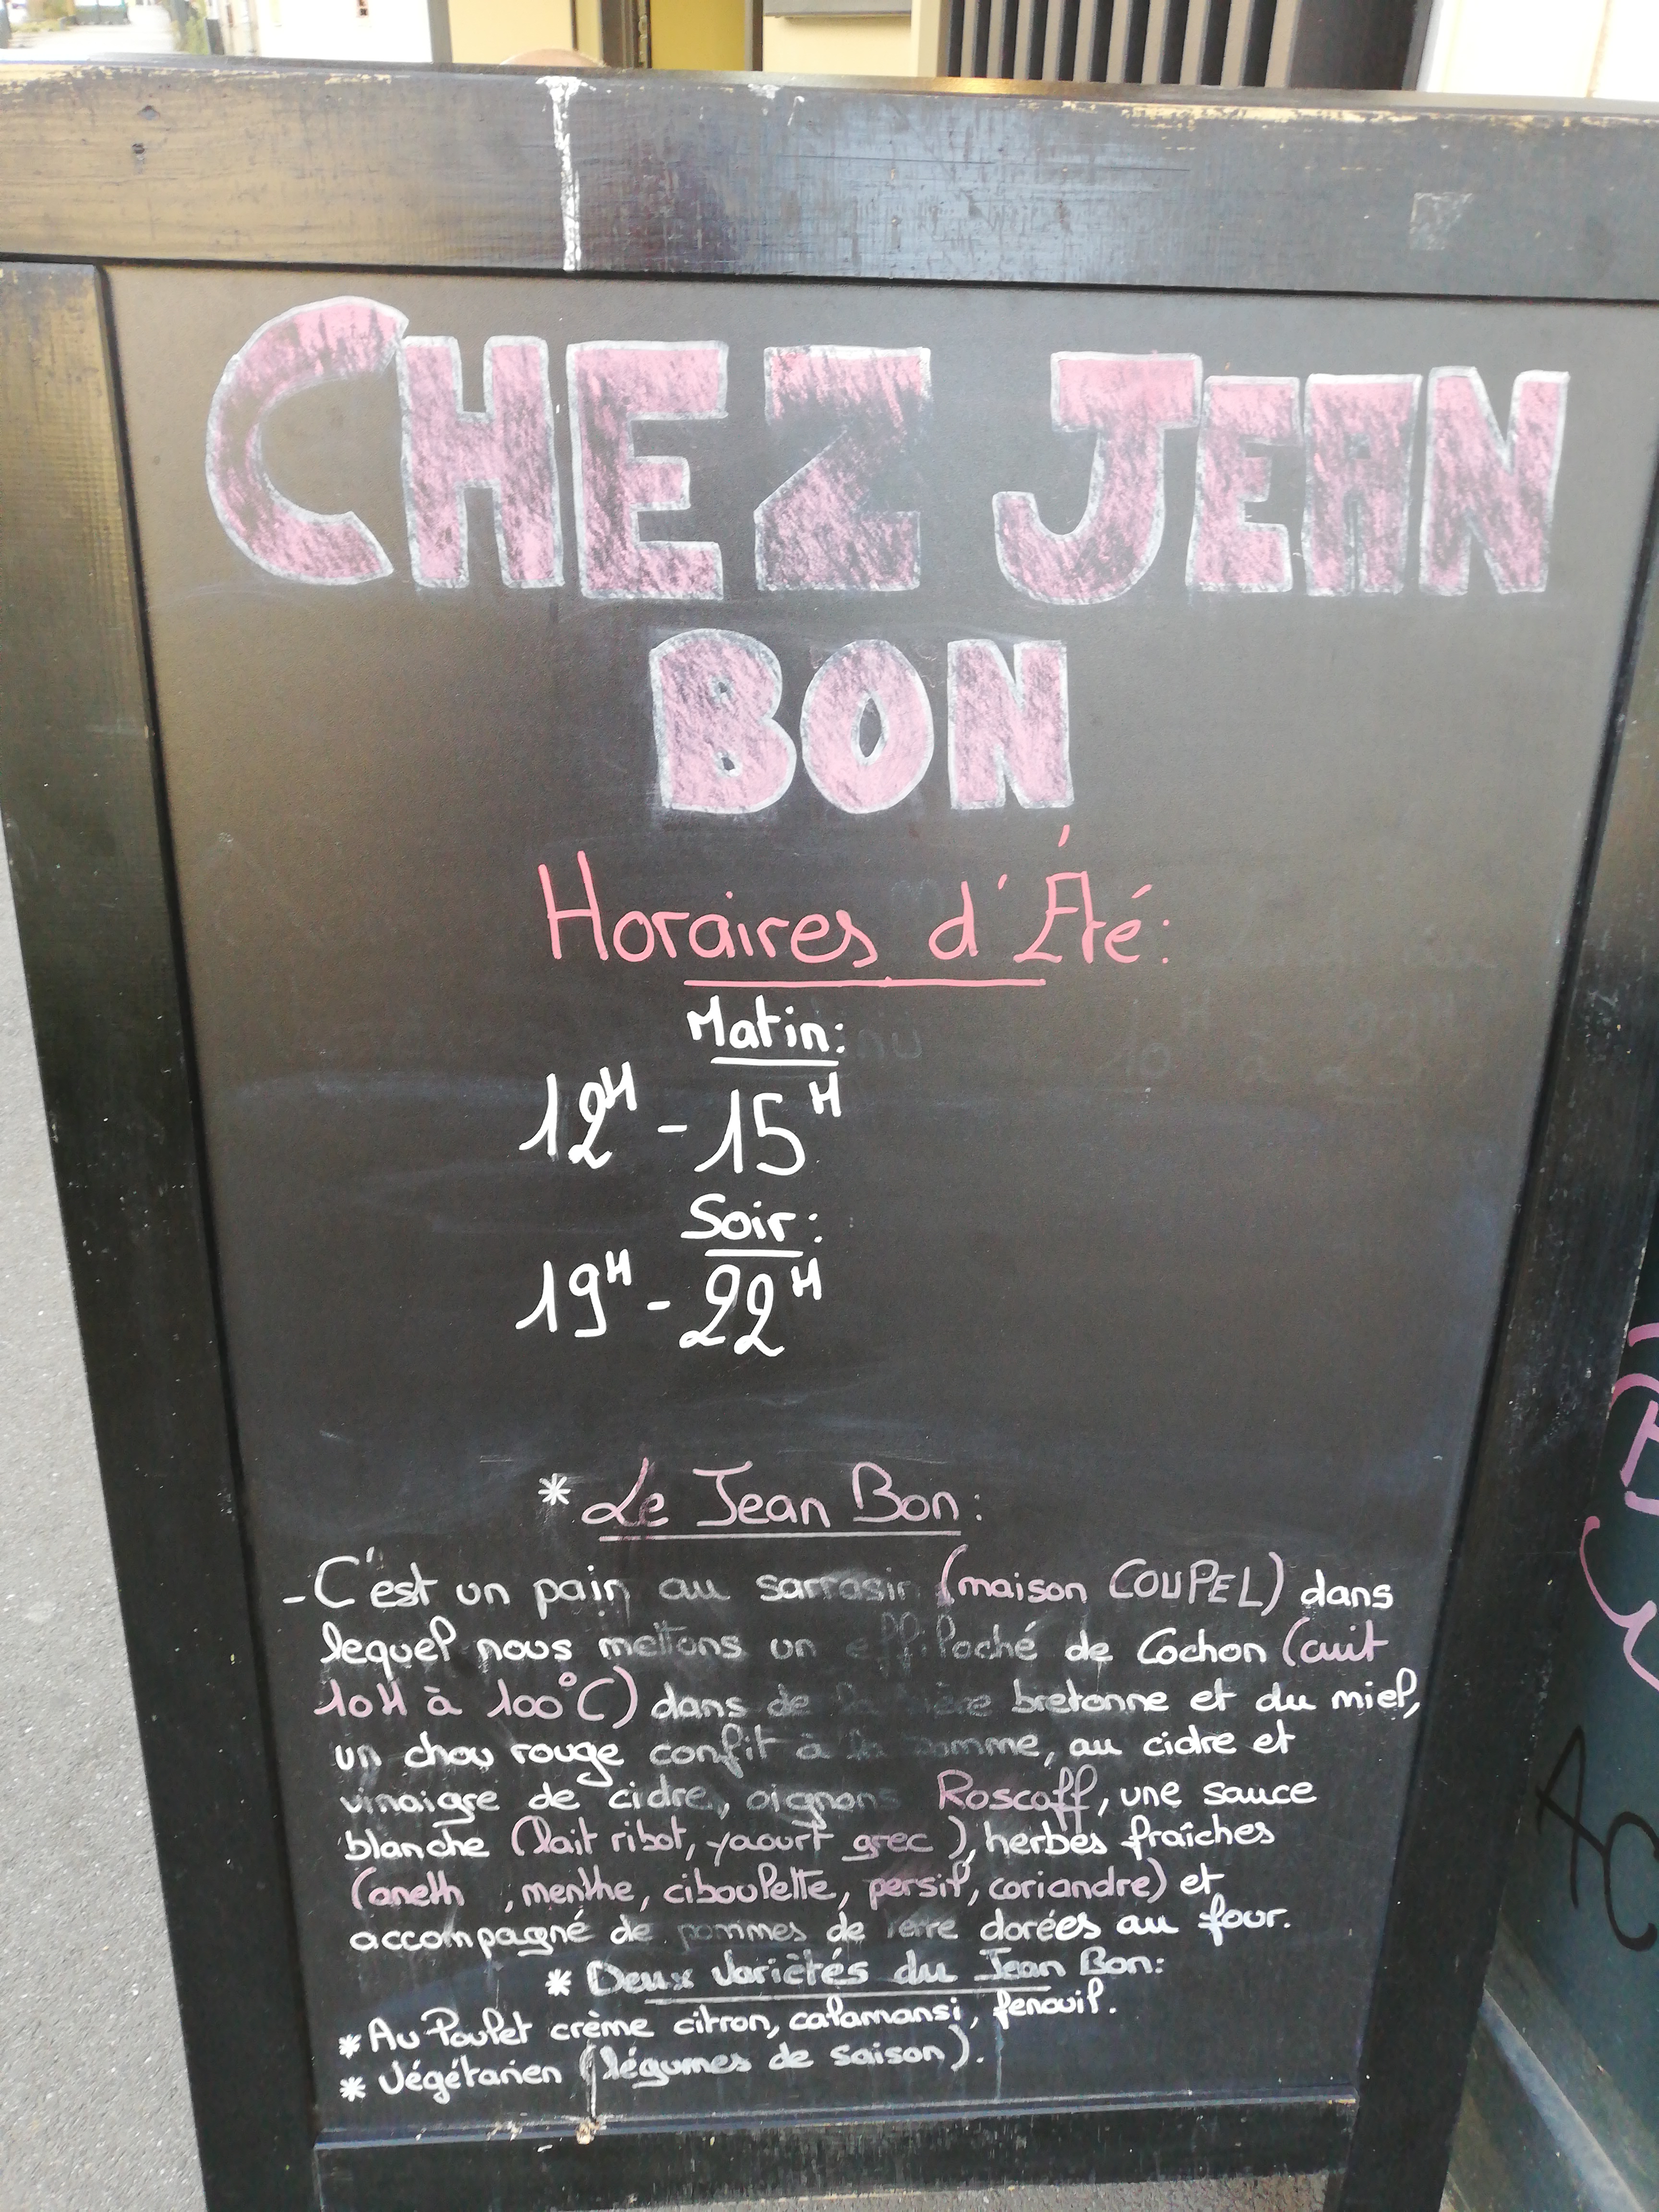 CHEZ JEAN
BON
Horaires d'Été:
Matin:
12H - 15H
Soir:
19H - 22H
* Le Jean Bon:
- C'est un pain au sarrasin (maison COUPEL) dans
lequel nous mettons un effiloché de Cochon (cuit
10H à 100°C) dans de la bière bretonne et du miel,
un chou rouge confit à la pomme, au cidre et
vinaigre de cidre, oignons Roscoff, une sauce
blanche (lait ribot, yaourt grec), herbes fraîches
(aneth, menthe, ciboulette, persil, coriandre) et
accompagné de pommes de terre dorées au four.
* Deux Variétés du Jean Bon:
* Au Poulet crème citron, calamansi, fenouil.
* Végétarien (légumes de saison).